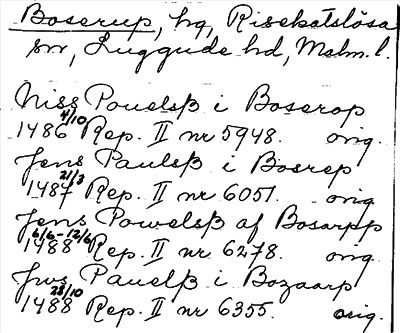 Boserup, hg, Risekatslösa
sn, Luggude hd, Malm. l.
Niss Pouelsß i Boserop
1486 4/10 Rep. II nr 5948. orig.
Jens Paulsß i Bosrep
1487 21/3 Rep. II nr 6051. orig
Jens Powelsß af Bosarpp
1488 6/6-12/6 Rep. II nr 6278. orig.
Jws Pauelß i Bozaarp
1488 28/10 Rep. II nr 6355. orig.